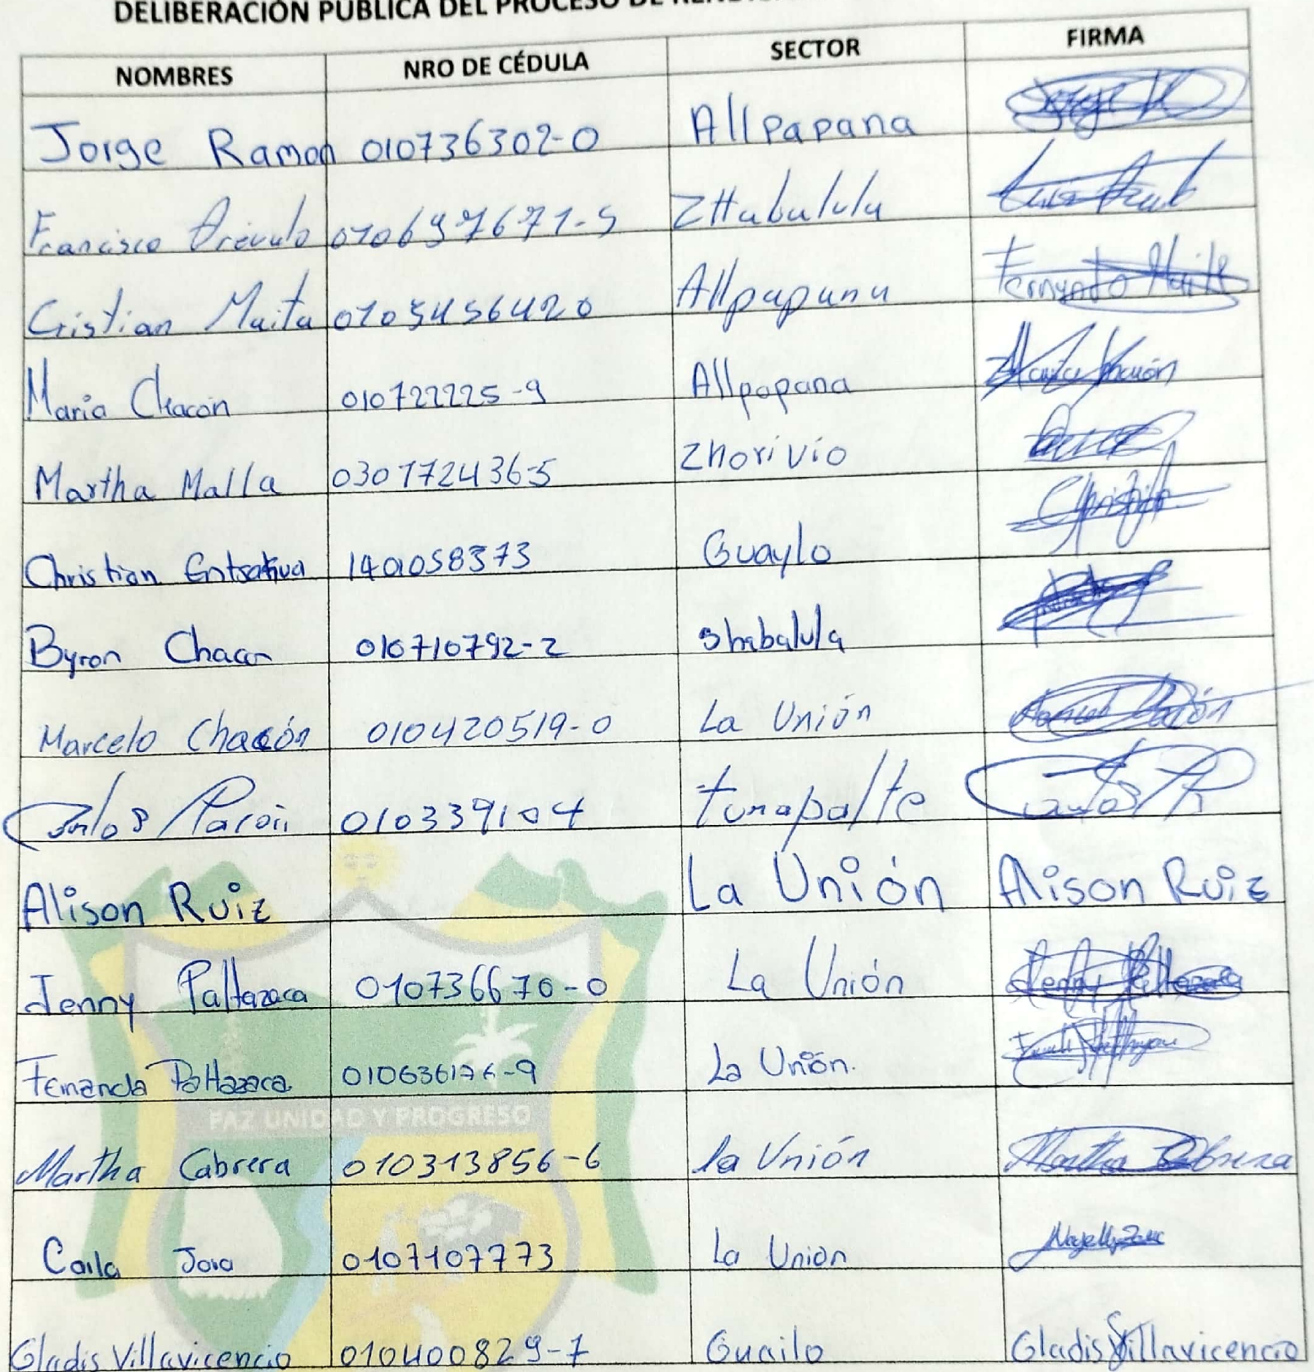 DELIBERACIÓN PÚBLICA DEL PROCESO DE
NOMBRES NRO DE CÉDULA SECTOR FIRMA
Jorge Ramon 010736302-0 Allpapana Jorge
Francisco Arévalo 010697671-5 Zhabalula
Cristian Maita 0105456420 Allpapana Fernando Maita
Maria Chacon 010722225-9 Allpapana Maria Chacón
Martha Malla 030172436-5 Zhorivio
Christian Entsakua 1401058373 Guaylo Christian
Byron Chacon 010710792-2 Shabalula
Marcelo Chacón 010420519-0 La Unión Marcelo Chacón
Carlos 010339104 Tunapalte Carlos
Alison Ruiz La Unión Alison Ruiz
Jenny Paltazaca 010736670-0 La Unión Jenny Paltazaca
Fernanda Paltazaca 010636176-9 La Unión.
PAZ UNIDAD Y PROGRESO
Martha Cabrera 010313856-6 la Unión Martha Cabrera
Carla Jara 0107107773 La Union
Gladis Villavicencio 010400829-7 Guailo Gladis Villavicencio